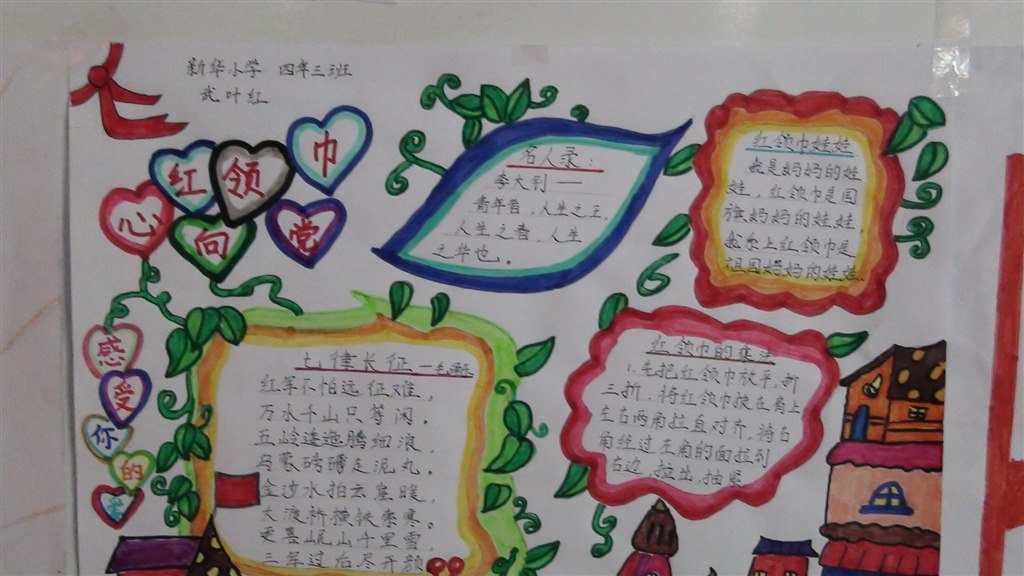 新华小学 四年三班
武叶红
红领巾
心向党
感受你的爱
名人录：
李大钊——
青年者，人生之王，
人生之春，人生
之华也。
红领巾娃娃
我是妈妈的娃
娃，红领巾是国
旗妈妈的娃娃，
戴上红领巾是
祖国妈妈的娃娃
七律长征—毛泽东
红军不怕远征难，
万水千山只等闲。
五岭逶迤腾细浪，
乌蒙磅礴走泥丸。
金沙水拍云崖暖，
大渡桥横铁索寒。
更喜岷山千里雪，
三军过后尽开颜
红领巾的集法
1.先把红领巾放平，折
三折，将红领巾披在肩上
左右两角拉直对齐，将右
角经过左角的面拉到
右边，拉出，抽紧